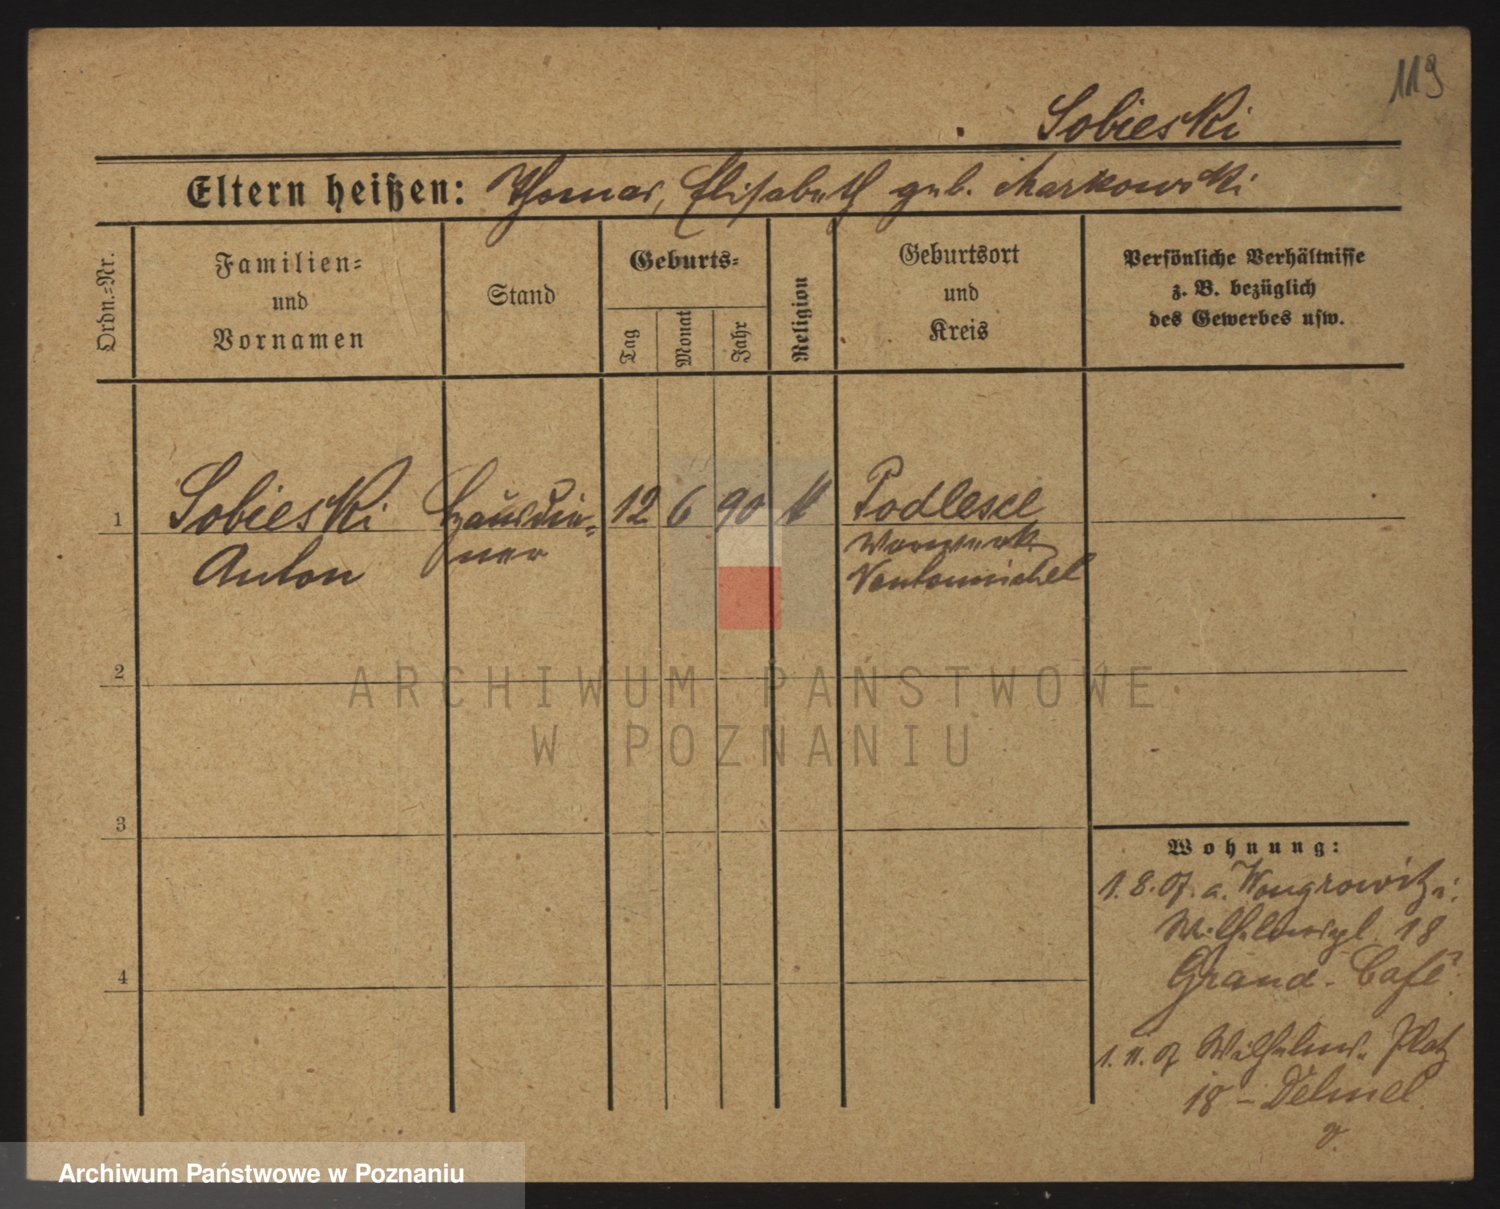 119
Sobieski
Eltern heißen: Thomas, Elisabeth geb. Markowski
Ordn.=Nr.
Familien=
und
Vornamen
Stand
Geburts=
Tag
Monat
Jahr
Religion
Geburtsort
und
Kreis
Persönliche Verhältnisse
z. B. bezüglich
des Gewerbes usw.
1
Sobieski
Anton
Hausdie=
ner
12 6 90 k
Podlesce
Worwerk
Neutomischel
2
ARCHIWUM PAŃSTWOWE
W POZNANIU
3
Wohnung:
1.8. 07. a. Wongrowitz:
Wilhelmspl. 18
Grand-Café
4
1.11.07 Wilhelms-Platz
18 –
Archiwum Państwowe w Poznaniu